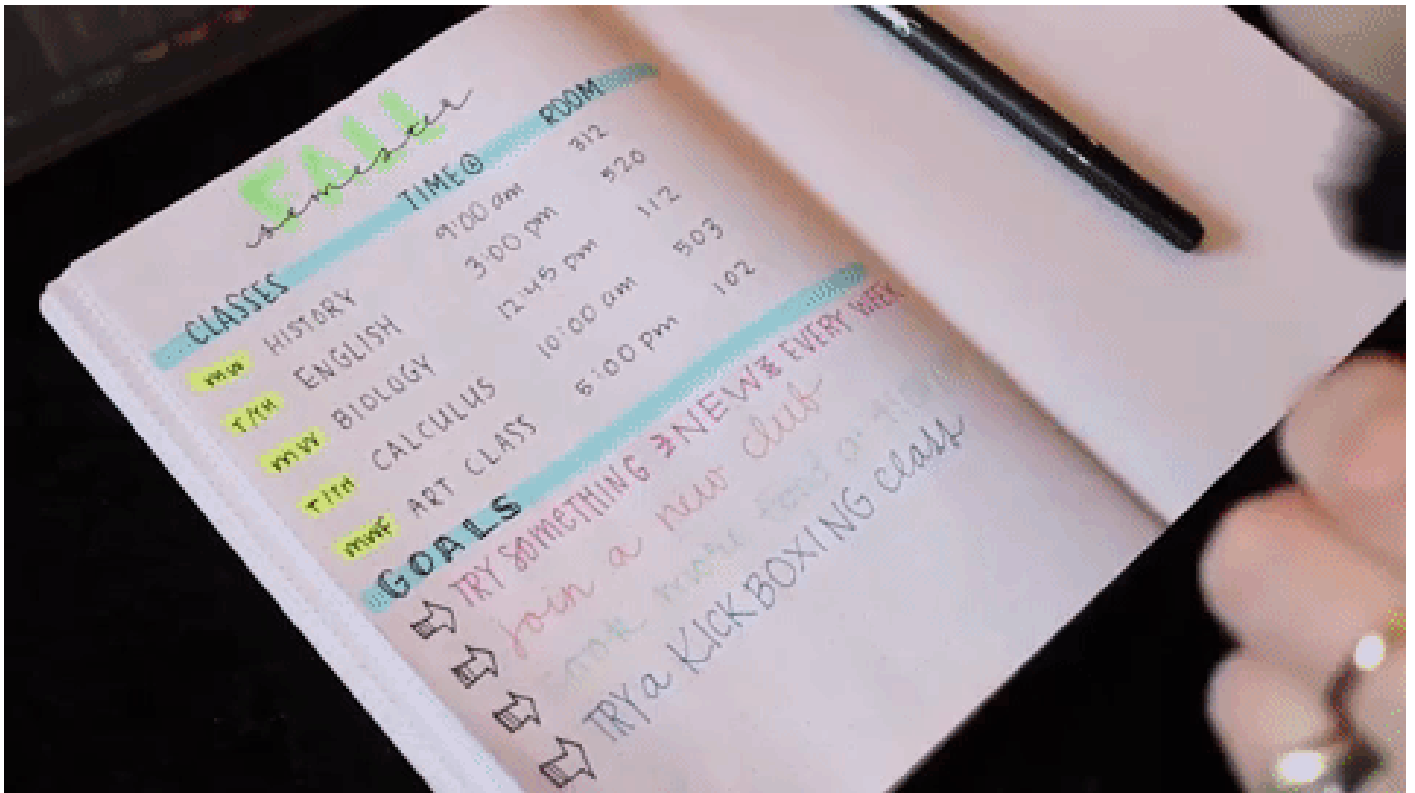 FALL
semester
CLASSES TIME ROOM
MW HISTORY 9:00 am 312
T/TH ENGLISH 3:00 pm 520
MW BIOLOGY 12:45 pm 112
T/TH CALCULUS 10:00 am 503
MWF ART CLASS 5:00 pm 102
GOALS
TRY SOMETHING NEW EVERY WEEK
join a new club
cook more food at
TRY a KICKBOXING class